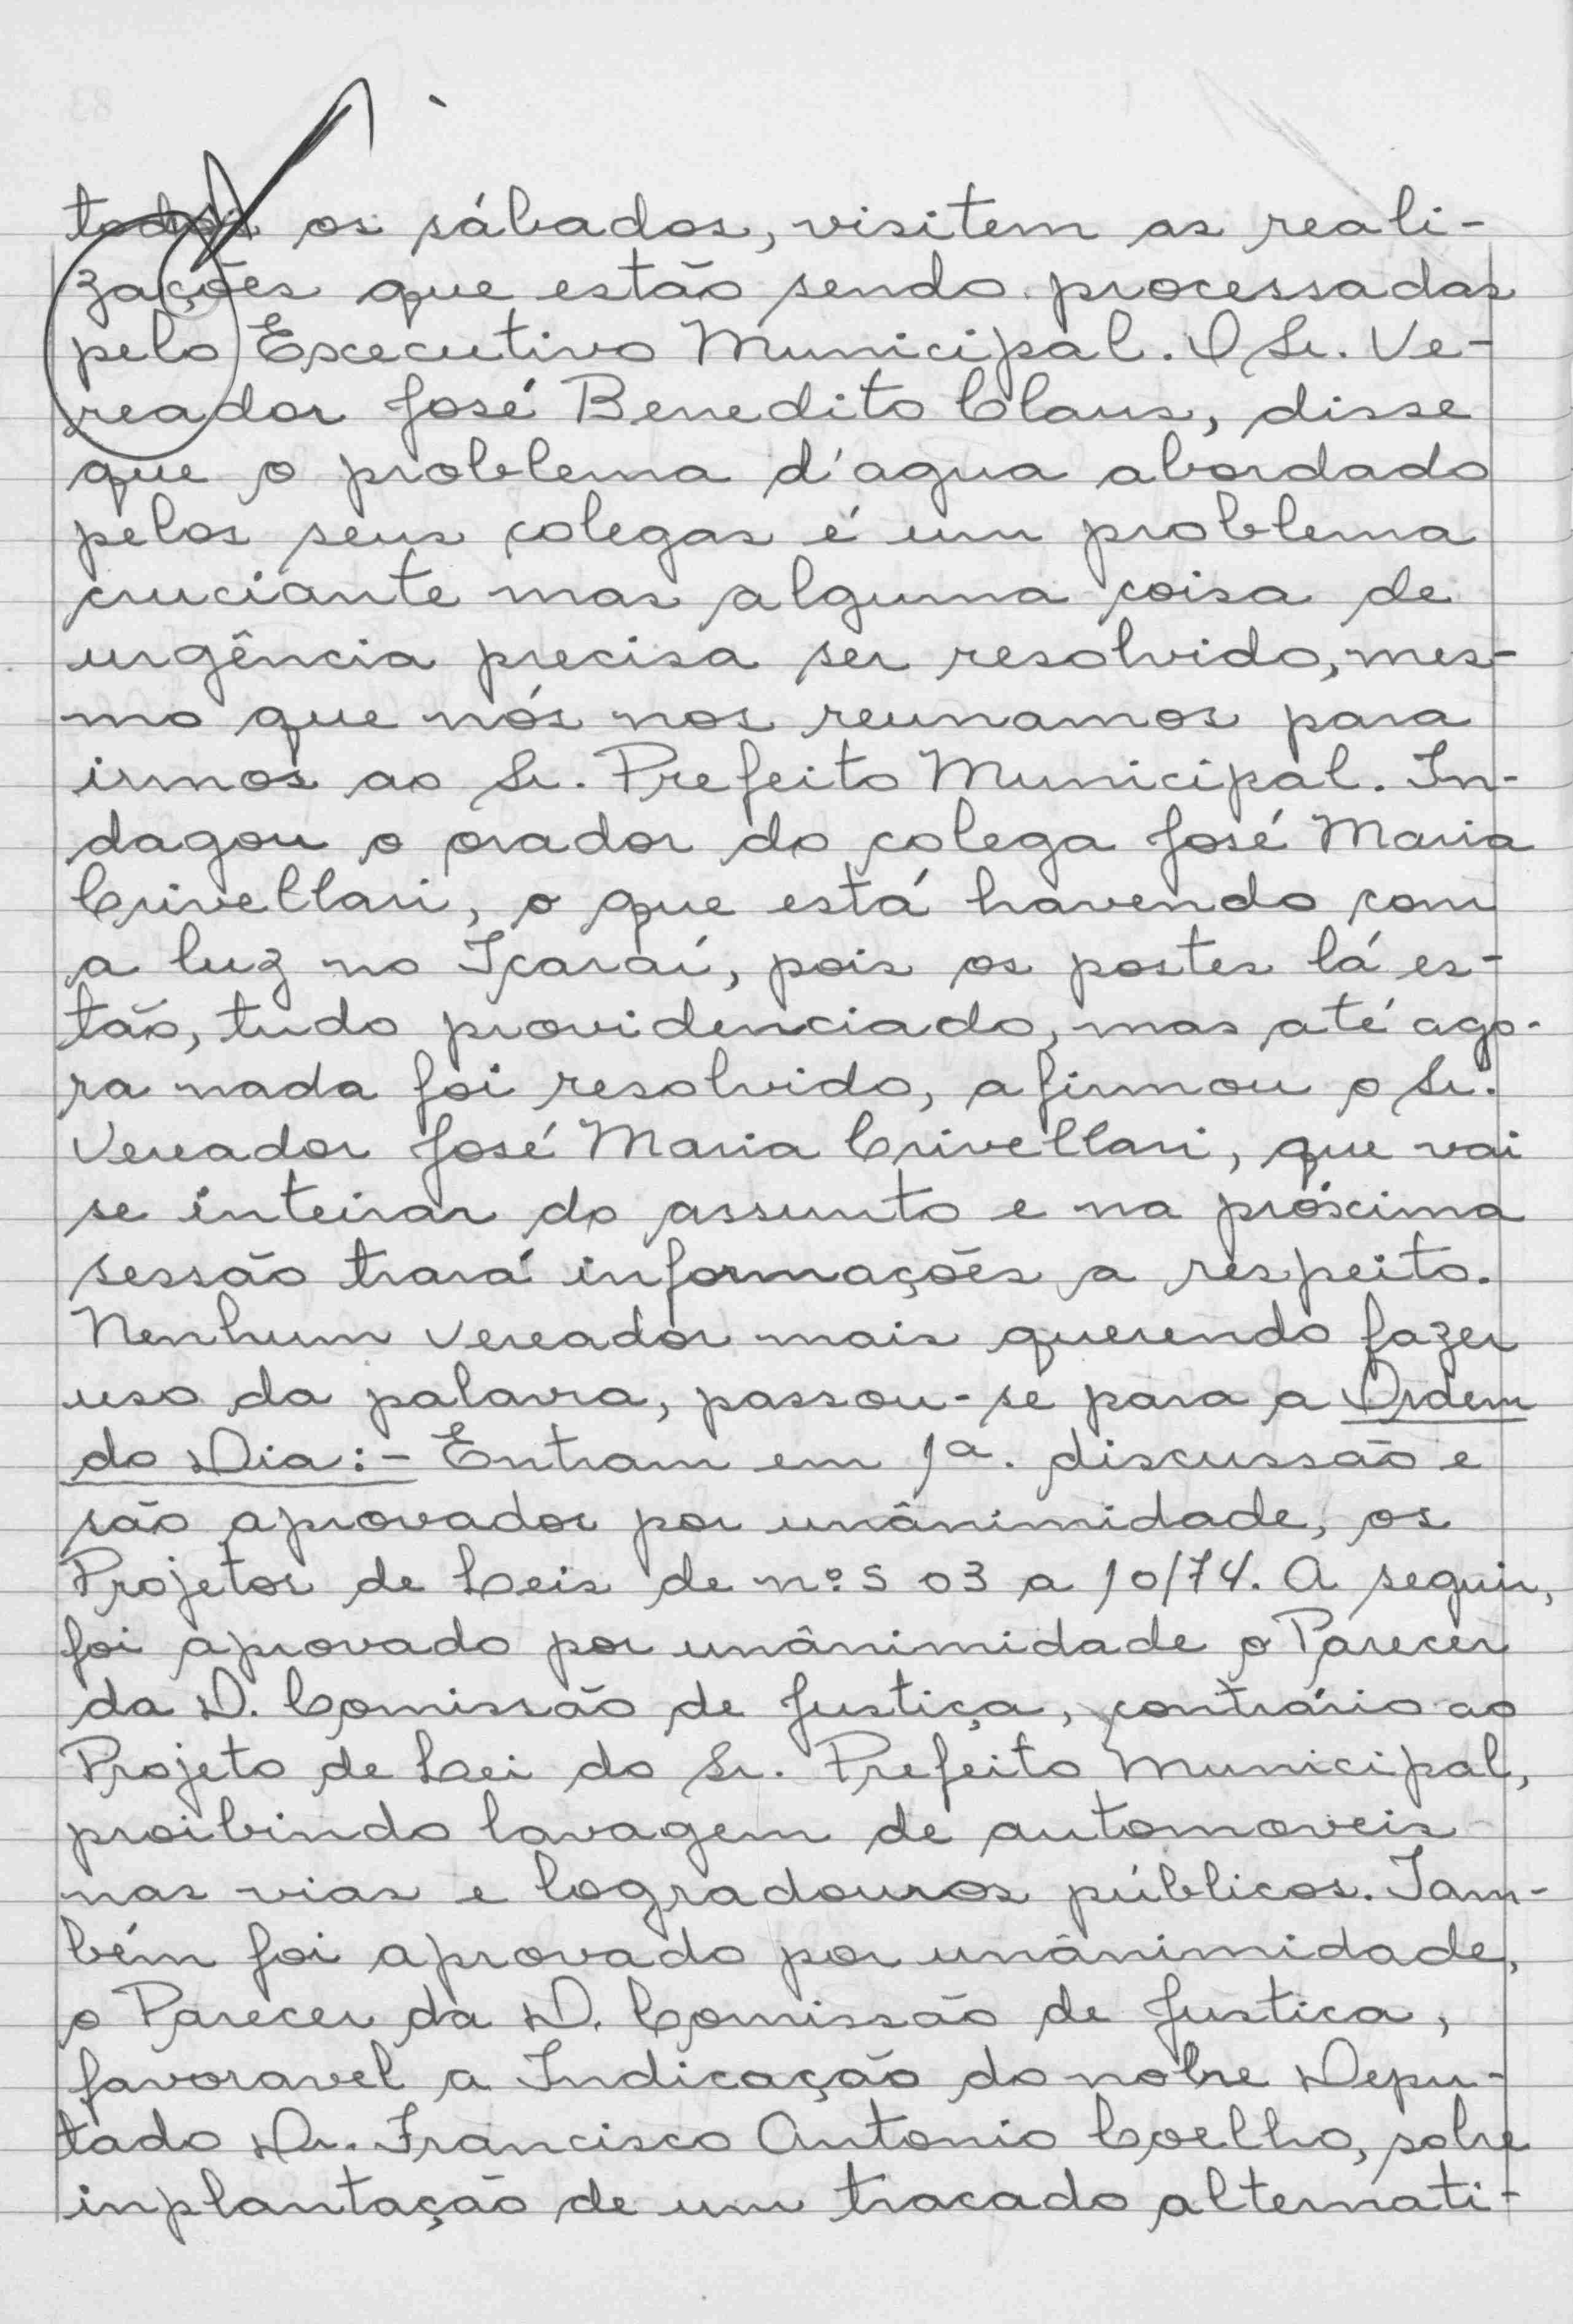 todos os sábados, visitem as reali-
zações que estão sendo processadas
pelo Executivo Municipal. O Sr. Ve-
reador José Benedito Claus, disse
que o problema d'agua abordado
pelos seus colegas é um problema
cruciante mas alguma coisa de
urgência precisa ser resolvido, mes-
mo que nós nos reunamos para
irmos ao Sr. Prefeito Municipal. In-
dagou o orador do colega José Maria
Crivellari, o que está havendo com
a luz no Içaraí, pois os postes lá es-
tão, tudo providenciado, mas até ago-
ra nada foi resolvido, afirmou o Sr.
Vereador José Maria Crivellari, que vai
se inteirar do assunto e na próxima
sessão trará informações a respeito.
Nenhum vereador mais querendo fazer
uso da palavra, passou-se para a Ordem
do Dia:- Entram em 1ª. discussão e
são aprovados por unânimidade, os
Projetos de Leis de nº.s 03 a 10/74. A seguir,
foi aprovado por unânimidade o Parecer
da D. Comissão de Justiça, contrário ao
Projeto de Lei do Sr. Prefeito Municipal,
proibindo lavagem de automoveis
nas vias e logradouros públicos. Tam-
bém foi aprovado por unânimidade,
o Parecer da D. Comissão de Justica,
favoravel a Indicação do nobre Depu-
tado Dr. Francisco Antonio Coelho, sobre
inplantação de um tracado alternati-